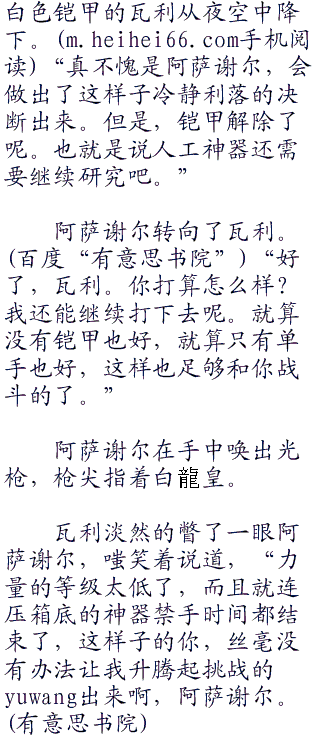 白色铠甲的瓦利从夜空中降
下。(m.heihei66.com手机阅
读)“真不愧是阿萨谢尔，会
做出了这样子冷静利落的决
断出来。但是，铠甲解除了
呢。也就是说人工神器还需
要继续研究吧。”
阿萨谢尔转向了瓦利。
(百度“有意思书院”)“好
了，瓦利。你打算怎么样？
我还能继续打下去呢。就算
没有铠甲也好，就算只有单
手也好，这样也足够和你战
斗的了。”
阿萨谢尔在手中唤出光
枪，枪尖指着白龍皇。
瓦利淡然的瞥了一眼阿
萨谢尔，嗤笑着说道，“力
量的等级太低了，而且就连
压箱底的神器禁手时间都结
束了，这样子的你，丝毫没
有办法让我升腾起挑战的
yuwang出来啊，阿萨谢尔。
(有意思书院)